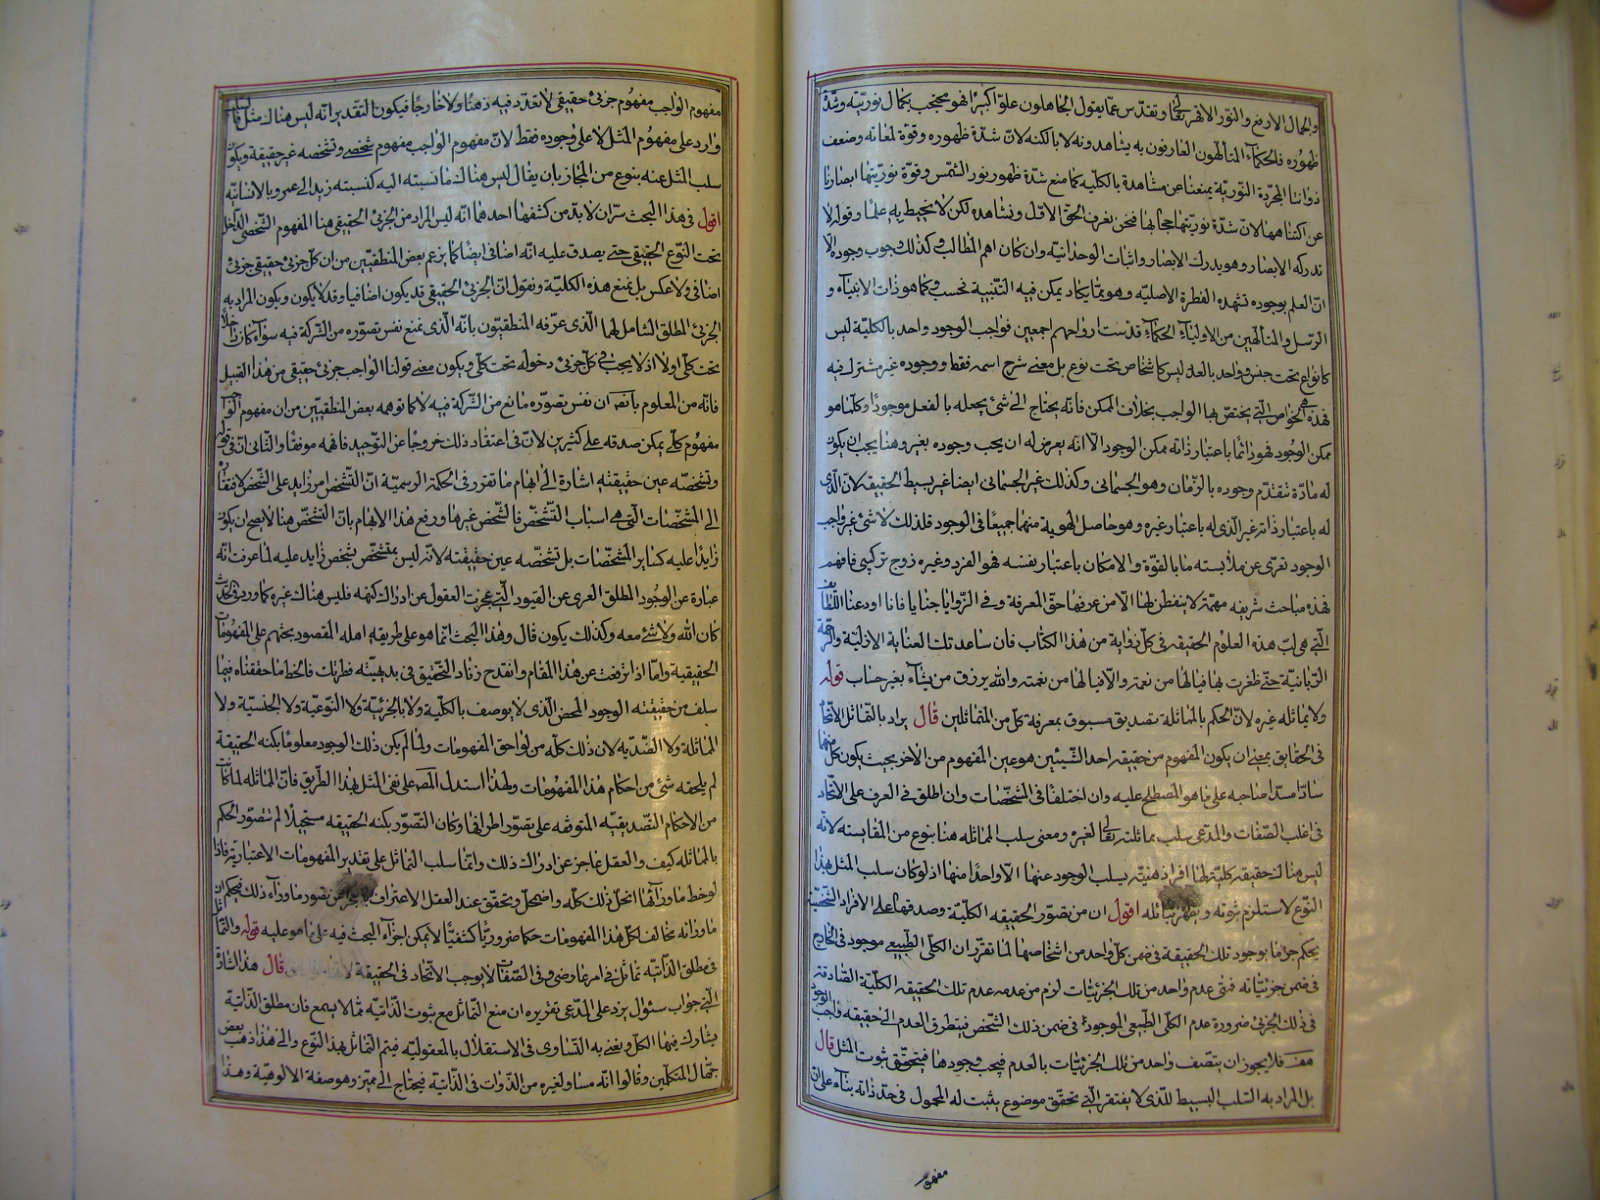 والجمال الارفع والنور الابهر تعالى وتقدس عما يقول الجاهلون علوا كبيرا فهو محتجب بكمال نوريته وشدة
ظهوره فالحكماء المتالهون العارفون به يشاهدونه لا بالكنه لان شدة ظهوره وقوة لمعانه وضعف
ذواتنا المجردة النورية يمنعنا عن مشاهدته بالكلية كما منع شدة ظهور نور الشمس وقوة نوريتها ابصارنا
عن اكتناهها لان شدة نوريتها حجابها فنحن نعرف الحق الاول ونشاهده لكن لا نحيط به علما وقوله لا
تدركه الابصار وهو يدرك الابصار واثبات الوحدانية وان كان اهم المطالب وكذلك وجوب وجوده الا
ان العلم بوجوده تشهده الفطرة الاصلية وهو مما يكاد يمكن فيه التنبيه فحسب وكما هو ذات الانبياء و
الرسل والمتالهين من الاولياء الحكماء قدست ارواحهم اجمعين فواجب الوجود واحد بالكلية ليس
كانواع تحت جنس وواحد بالعدد ليس كاشخاص تحت نوع بل معنى شرح اسمه فقط ووجوده غير مشترك فيه
فهذه هي الخواص التي يختص بها الواجب بخلاف الممكن فانه يحتاج الى شئ يجعله بالفعل موجودا وكلما هو
ممكن الوجود فهو دائما باعتبار ذاته ممكن الوجود الا انه يعرض له ان يجب وجوده بغيره وهنا يجب ان يكون
له مادة تتقدم وجوده بالزمان وهو الجسمانى وكذلك غير الجسمانى ايضا غير بسيط الحقيقة لان الذى
له باعتبار ذاته غير الذى له باعتبار غيره وهو حاصل الهوية منهما جميعا فى الوجود فلذلك لا شئ غير واجب
الوجود تعرى عن ملابسته ما بالقوة والامكان باعتبار نفسه فهو الفرد وغيره زوج تركيبى فافهم
فهذه مباحث شريفه مهمة لا يتفطن لها الا من عرفها حق المعرفة وفى الزوايا خبايا فانا اودعنا اللطايف
التى هى لب هذه العلوم الحقيقه فى كل زواية من هذا الكتاب فان ساعدتك العناية الازلية والرحمة
الربانية حتى ظفرت بها فيالها من نعمة والا فيالها من نقمة والله يرزق من يشاء بغير حساب قوله
ولا يماثله غيره لان الحكم بالمماثلة تصديق مسبوق بمعرفة كل من المتماثلين قال يراد بالتماثل الاتحاد
فى الحقايق بمعنى ان يكون المفهوم من حقيقه احد الشيئين هو عين المفهوم من الاخر بحيث يكون كل منهما
سادا مسد صاحبه على ما هو المصطلح عليه وان اختلفا فى المشخصات وان اطلق فى العرف على الاتحاد
فى اغلب الصفات والمدعى سلب مماثلته تعالى لغيره ومعنى سلب المماثله هنا بنوع من المقايسته لانه
ليس هناك حقيقه كلية لها افراد ذهنية يسلب الوجود عنها الا واحدا منها اذ لو كان سلب المثل بهذا
النوع لاستلزم ثبوته اقول ان من تصور الحقيقه الكلية وصدقها على الافراد الشخصية
يحكم جزما بوجود تلك الحقيقة فى ضمن كل واحد من اشخاصها لما تقرر ان الكلى الطبيعى موجود فى الخارج
فى ضمن جزئياته فمتى عدم واحد من تلك الجزئيات لزم من عدمه عدم تلك الحقيقه الكلية الصادقة
فى ذلك الجزئى ضرورة عدم الكلى الطبيعى الموجود فى ضمن ذلك الشخص فيتطرق العدم الى حقيقه واجب الوجود
هف فلا يجوز ان يتصف واحد من تلك الجزئيات بالعدم فيجب وجودها فيتحقق ثبوت المثل قال
بل المراد به السلب البسيط للذى لا يفتقر الى تحقق موضوع يثبت له المحمول فى حد ذاته بناء على ان
مفهوم
مفهوم الواجب مفهوم جزئى حقيقى لا تعدد فيه ذهنا ولا خارجا فيكون التقدير انه ليس هناك مثل فالسلب
وارد على مفهوم المثل لا على وجوده فقط لان مفهوم الواجب مفهوم شخصى وتشخصه عين حقيقته ويكون
سلب المثل عنه بنوع من المجاز بان يقال ليس هناك ما نسبته اليه كنسبته زيد الى عمرو بالانسانية
اقول فى هذا البحث سران لا بد من كشفهما احدهما انه ليس المراد من الجزئى الحقيقى هنا المفهوم الشخصى الداخل
تحت النوع الحقيقى حتى يصدق عليه انه اضافى ايضا كما يزعم بعض المنطقيين من ان كل جزئى حقيقى جزئى
اضافى ولا عكس بل نمنع هذه الكلية ونقول ان الجزئى الحقيقى قد يكون اضافيا وقد لا يكون ويكون المراد به
الجزئى المطلق الشامل لهما الذى عرفه المنطقيون بانه الذى تمنع نفس تصوره من الشركة فيه سواء كان داخلا
تحت كلى او لا اذ لا يجب فى كل جزئى دخوله تحت كلى ويكون معنى قولنا الواجب جزئى حقيقى من هذا القبيل
فانه من المعلوم ان نفس تصوره مانع من الشركة فيه لا كما توهمه بعض المنطقيين من ان مفهوم الواجب
مفهوم كلى يمكن صدقه على كثيرين لان فى اعتقاد ذلك خروجا عن التوحيد فافهمه موفقا والثانى ان فى قوله
وتشخصه عين حقيقته اشارة الى ابهام ما تقرر فى الحكمة الرسمية ان التشخص امر زايد على الشخص لافتقاره
الى المشخصات التى هى اسباب التشخص فالشخص غيرها ورفع هذا الابهام بان التشخص هنا لا يصح ان يكون
زايدا عليه كساير المشخصات بل تشخصه عين حقيقته لانه ليس بمتشخص بشخص زايد عليه لما عرفت انه
عبارة عن الوجود المطلق العرى عن القيود التى عجزت العقول عن ادراك كنهه فليس هناك غيره كما ورد فى الحديث
كان الله ولا شئ معه وكذلك يكون قال وهذا البحث انما هو على طريقه اهله المقصود بحثهم على المفهومات
الحقيقية واما اذا ترقت عن هذا المقام وانقدح زناد التحقيق فى بديهيته فطرتك فالحظ ما حققناه فيما
سلف من حقيقته الوجود المحض الذى لا يوصف بالكلية ولا بالجزئية ولا النوعية ولا الجنسية ولا
المماثلة ولا الضديه لان ذلك كله من لواحق المفهومات ولما لم يكن ذلك الوجود معلوما بكنه الحقيقة
لم يلحقه شئ من احكام هذا المفهومات ولهذا استدل المص على نفى المثل بهذا الطريق فان المماثله لما كانت
من الاحكام التصديقيه المتوقفه على تصور اطرافها وكان التصور بكنه الحقيقه مستحيلا لم تتصور الحكم
بالمماثله كيف والعقل عاجز عن ادراك ذلك وانما سلب التماثل على تقدير المفهومات الاعتبارية فاذا
لوحظ ما وراها انحل ذلك كله واضمحل وتحقق عند العقل الاعتراف بالعجز عن تصور ما وراء ذلك فيحكم ان
ما وراءه مخالف لكل هذا المفهومات حكما ضروريا كشفيا لا يمكن اجزاء البحث فيه على ما هو عليه قوله والتماثل
فى مطلق الذاتية تماثل فى امر عارضى وفى الصفات لا يوجب الاتحاد فى الحقيقة قال هذا اشارة
الى جواب سئوال يرد على المدعى تقريره ان منع التماثل مع ثبوت الذاتية مما لا يسمع فان مطلق الذاتية
يشارك فيها الكل ويغنى به التساوى فى الاستقلال بالمعقولية فيتم التماثل بهذا النوع والى هذا ذهب بعض
جهال المتكلمين وقالوا انه مساو لغيره من الذوات فى الذاتية فيحتاج الى مميز وهو صفة الالوهية وهذا